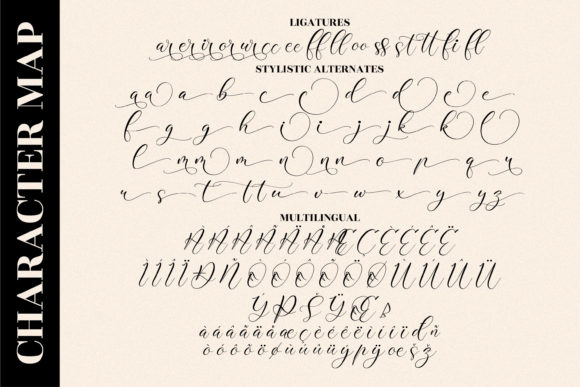 CHARACTER MAP
LIGATURES
ar er ir or ur cc ee ff ll oo ss st tt fi fl
STYLISTIC ALTERNATES
a a a b c d d e e
f g g h i i j j k k l
l m m m n n n o p q r
r s t t t u v w x y y z
MULTILINGUAL
À Á Â Ã Ä Å Æ Ç È É Ê Ë
Ì Í Î Ï Ð Ñ Ò Ó Ô Õ Ö Ø Ù Ú Û Ü
Ý Þ Š Ÿ Œ
à á â ã ä å æ ç è é ê ë ì í î ï ñ
ò ó ô õ ö ø ù ú û ü ý þ ÿ œ š ž